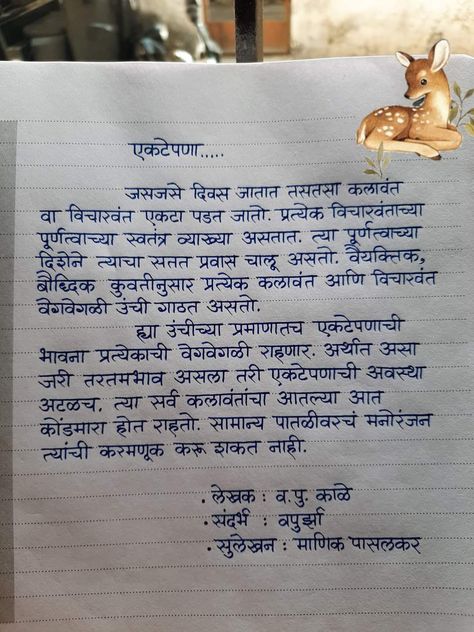 एकटेपणा.....
जसजसे दिवस जातात तसतसा कलावंत
वा विचारवंत एकटा पडत जातो. प्रत्येक विचारवंताच्या
पूर्णत्वाच्या स्वतंत्र व्याख्या असतात. त्या पूर्णत्वाच्या
दिशेने त्याचा सतत प्रवास चालू असतो. वैयक्तिक,
बौध्दिक कुवतीनुसार प्रत्येक कलावंत आणि विचारवंत
वेगवेगळी उंची गाठत असतो.
ह्या उंचीच्या प्रमाणातच एकटेपणाची
भावना प्रत्येकाची वेगवेगळी राहणार. अर्थात असा
जरी तरतमभाव असला तरी एकटेपणाची अवस्था
अटळच. त्या सर्व कलावंतांचा आतल्या आत
कोंडमारा होत राहतो. सामान्य पातळीवरचं मनोरंजन
त्यांची करमणूक करू शकत नाही.
. लेखक : व. पु. काळे
. संदर्भ : वपुर्झा
. सुलेखन : माणिक पासलकर